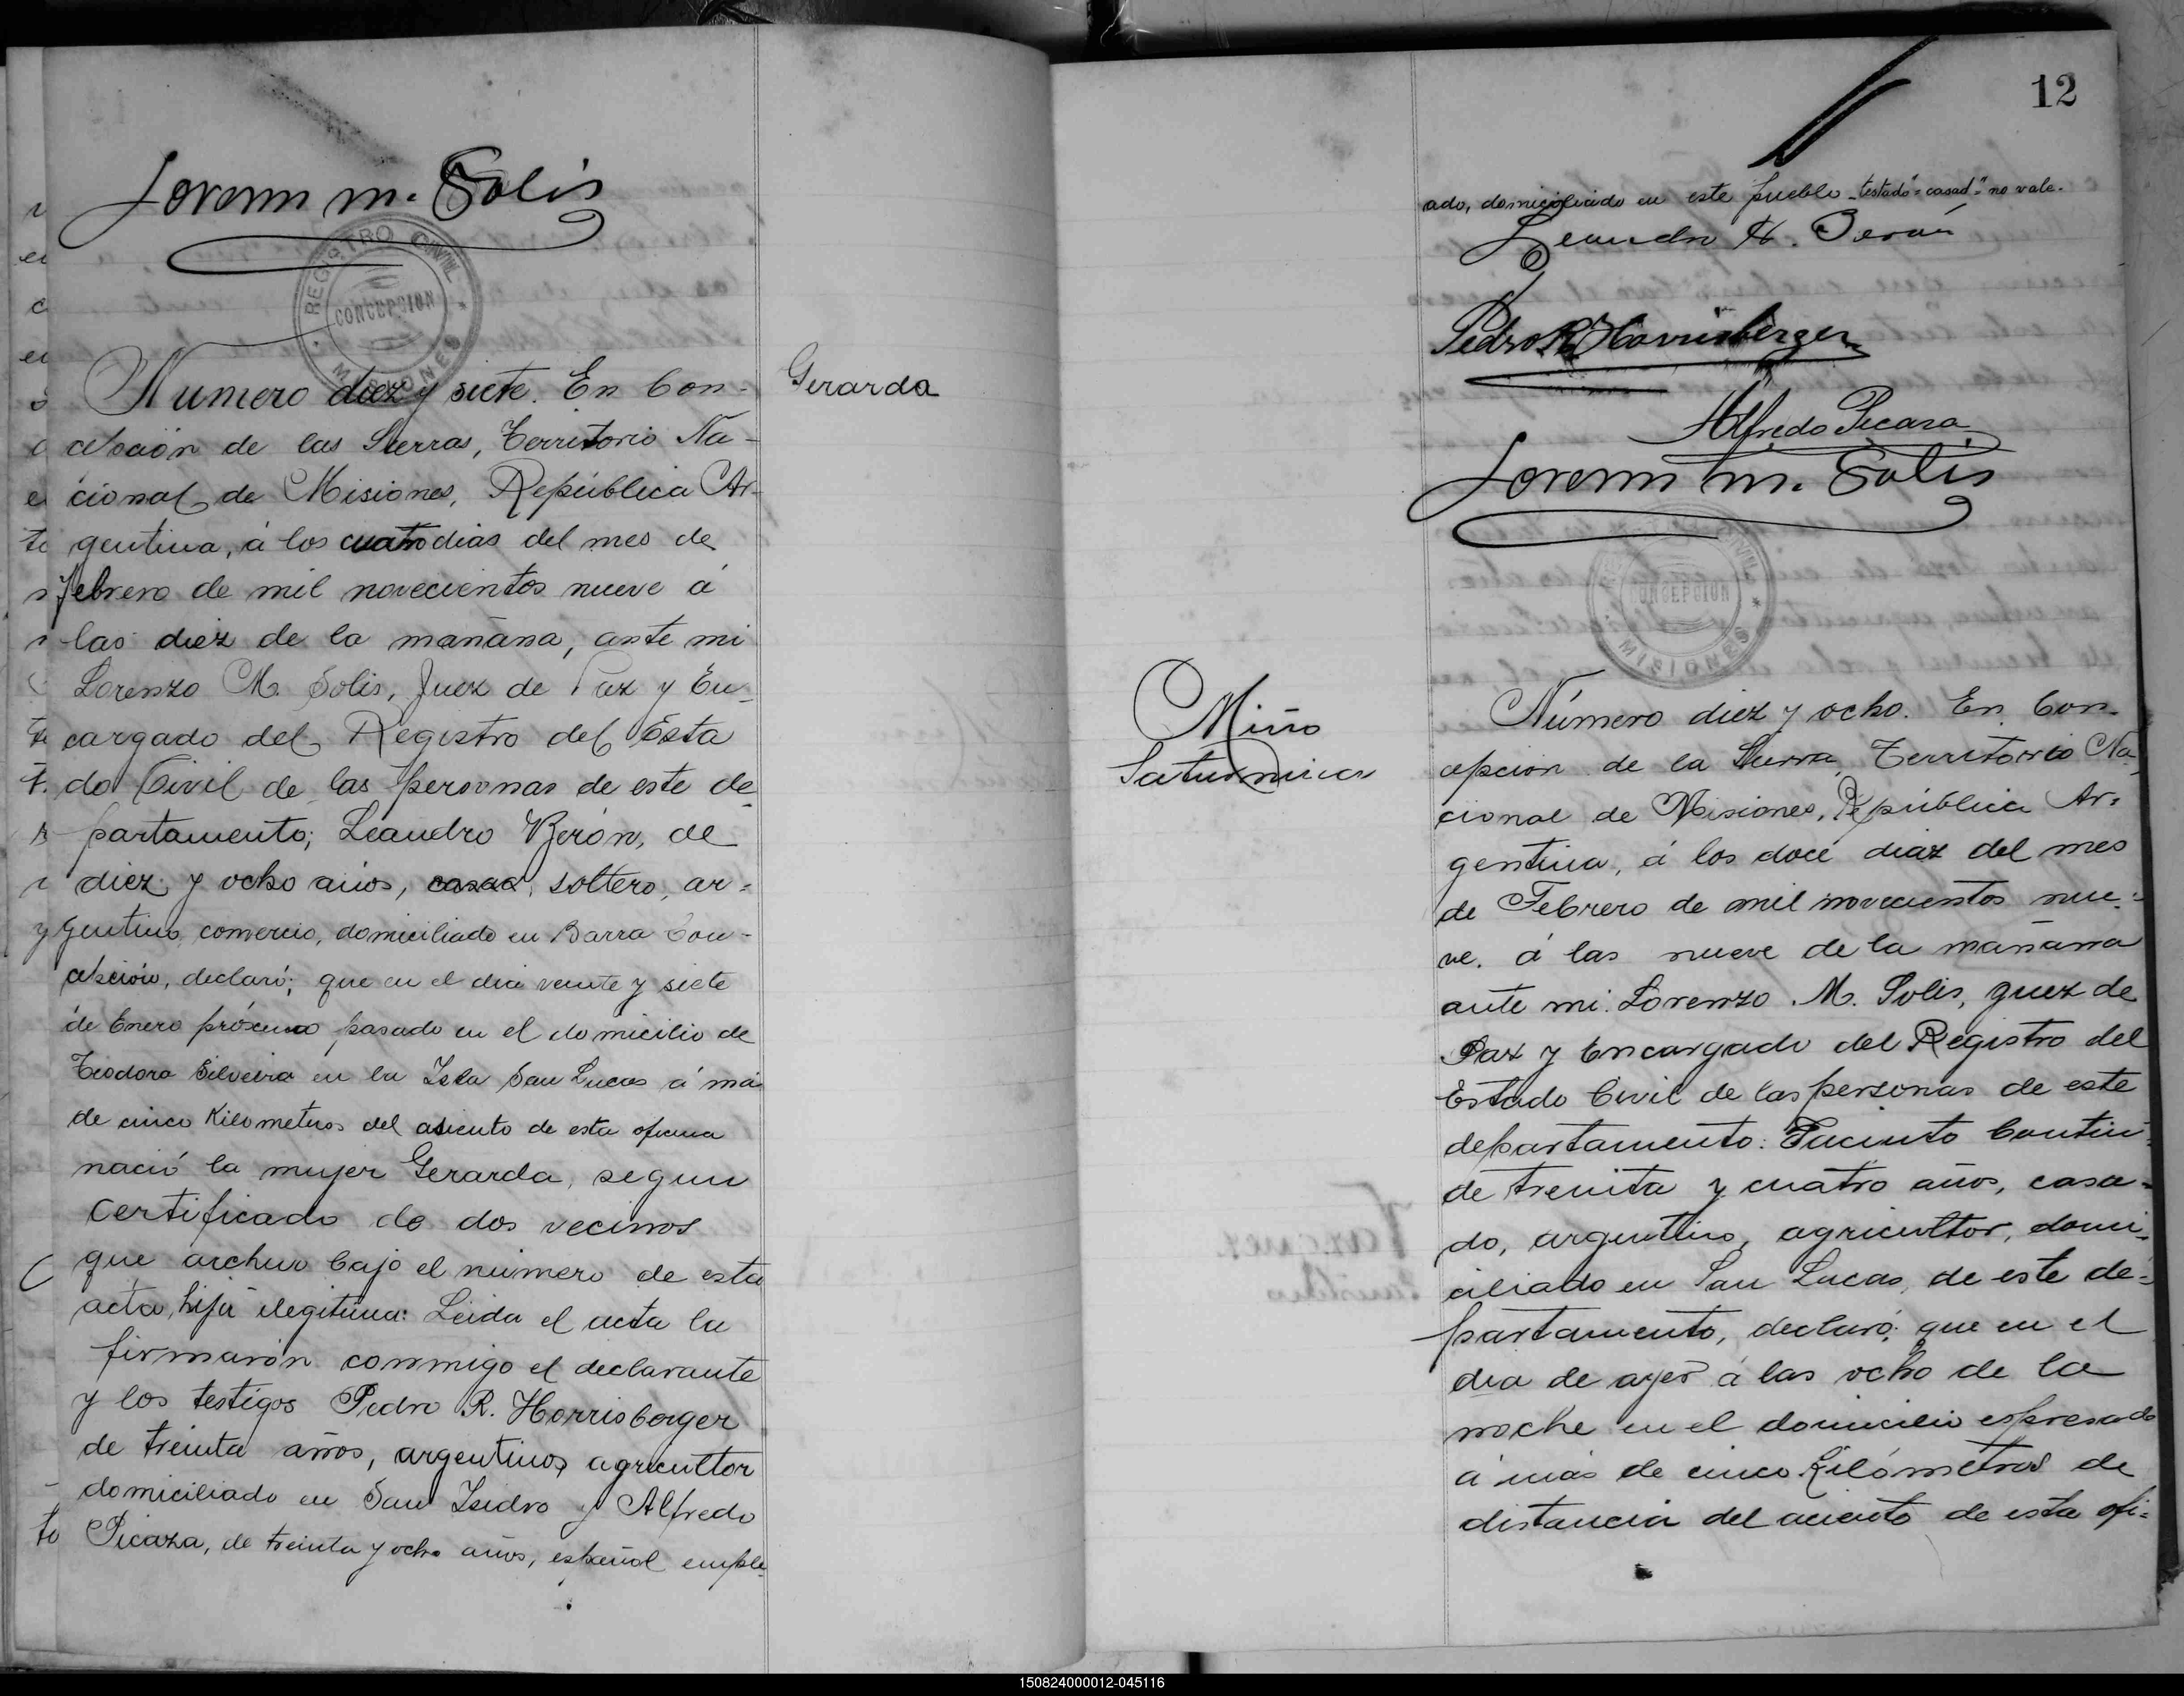 Lorenzo M. Solis
REGISTRO CIVIL
CONCEPCION
MISIONES
Gerarda
Numero diez y siete. En Con-
cepción de las Sierras, Territorio Na-
cional de Misiones, República Ar-
gentina, á los cuatro dias del mes de
febrero de mil novecientos nueve á
las diez de la mañana, ante mi
Lorenzo M. Solis, Juez de Paz y En-
cargado del Registro del Esta
do Civil de las personas de este de-
partamento; Leandro Verón, de
diez y ocho años, casad, soltero, ar-
gentino, comercio, domiciliado en Barra Con-
cepción, declaró; que en el dia veinte y siete
de Enero próximo pasado en el domicilio de
Teodora Silveira en la Isla San Lucas á mas
de cinco Kilometros del asiento de esta oficina
nació la mujer Gerarda, segun
certificado de dos vecinos
que archivo bajo el número de esta
acta, hija ilegitima: Leida el acta la
firmarón conmigo el declarante
y los testigos Pedro R. Horrisberger
de treinta años, argentino, agricultor
domiciliado en San Isidro y Alfredo
Picaza, de treinta y ocho años, español emple-
12
ado, domiciliado en este pueblo - testado "casad" no vale.
Leandro Verón
Pedro R. Horrisberger
Alfredo Picaza
Lorenzo M. Solis
CIVIL
CONCEPCION
MISIONES
Miño
Saturnina
Número diez y ocho. En Con-
cepcion de la Sierra, Territorio Na-
cional de Misiones, República Ar-
gentina, á los doce diaz del mes
de Febrero de mil novecientos nue-
ve. á las nueve de la mañana
ante mi. Lorenzo M. Solis, guez de
Paz y Encargado del Registro del
Estado Civil de las personas de este
departamento: Jacinto
de treinta y cuatro años, casa-
do, argentino, agricultor, domi-
ciliado en San Lucas, de este de-
partamento, declaró; que en el
dia de ayer á las ocho de la
noche en el domicilio espresado
á más de cinco Kilómetros de
distancia del aciento de esta ofi-
150824000012-045116